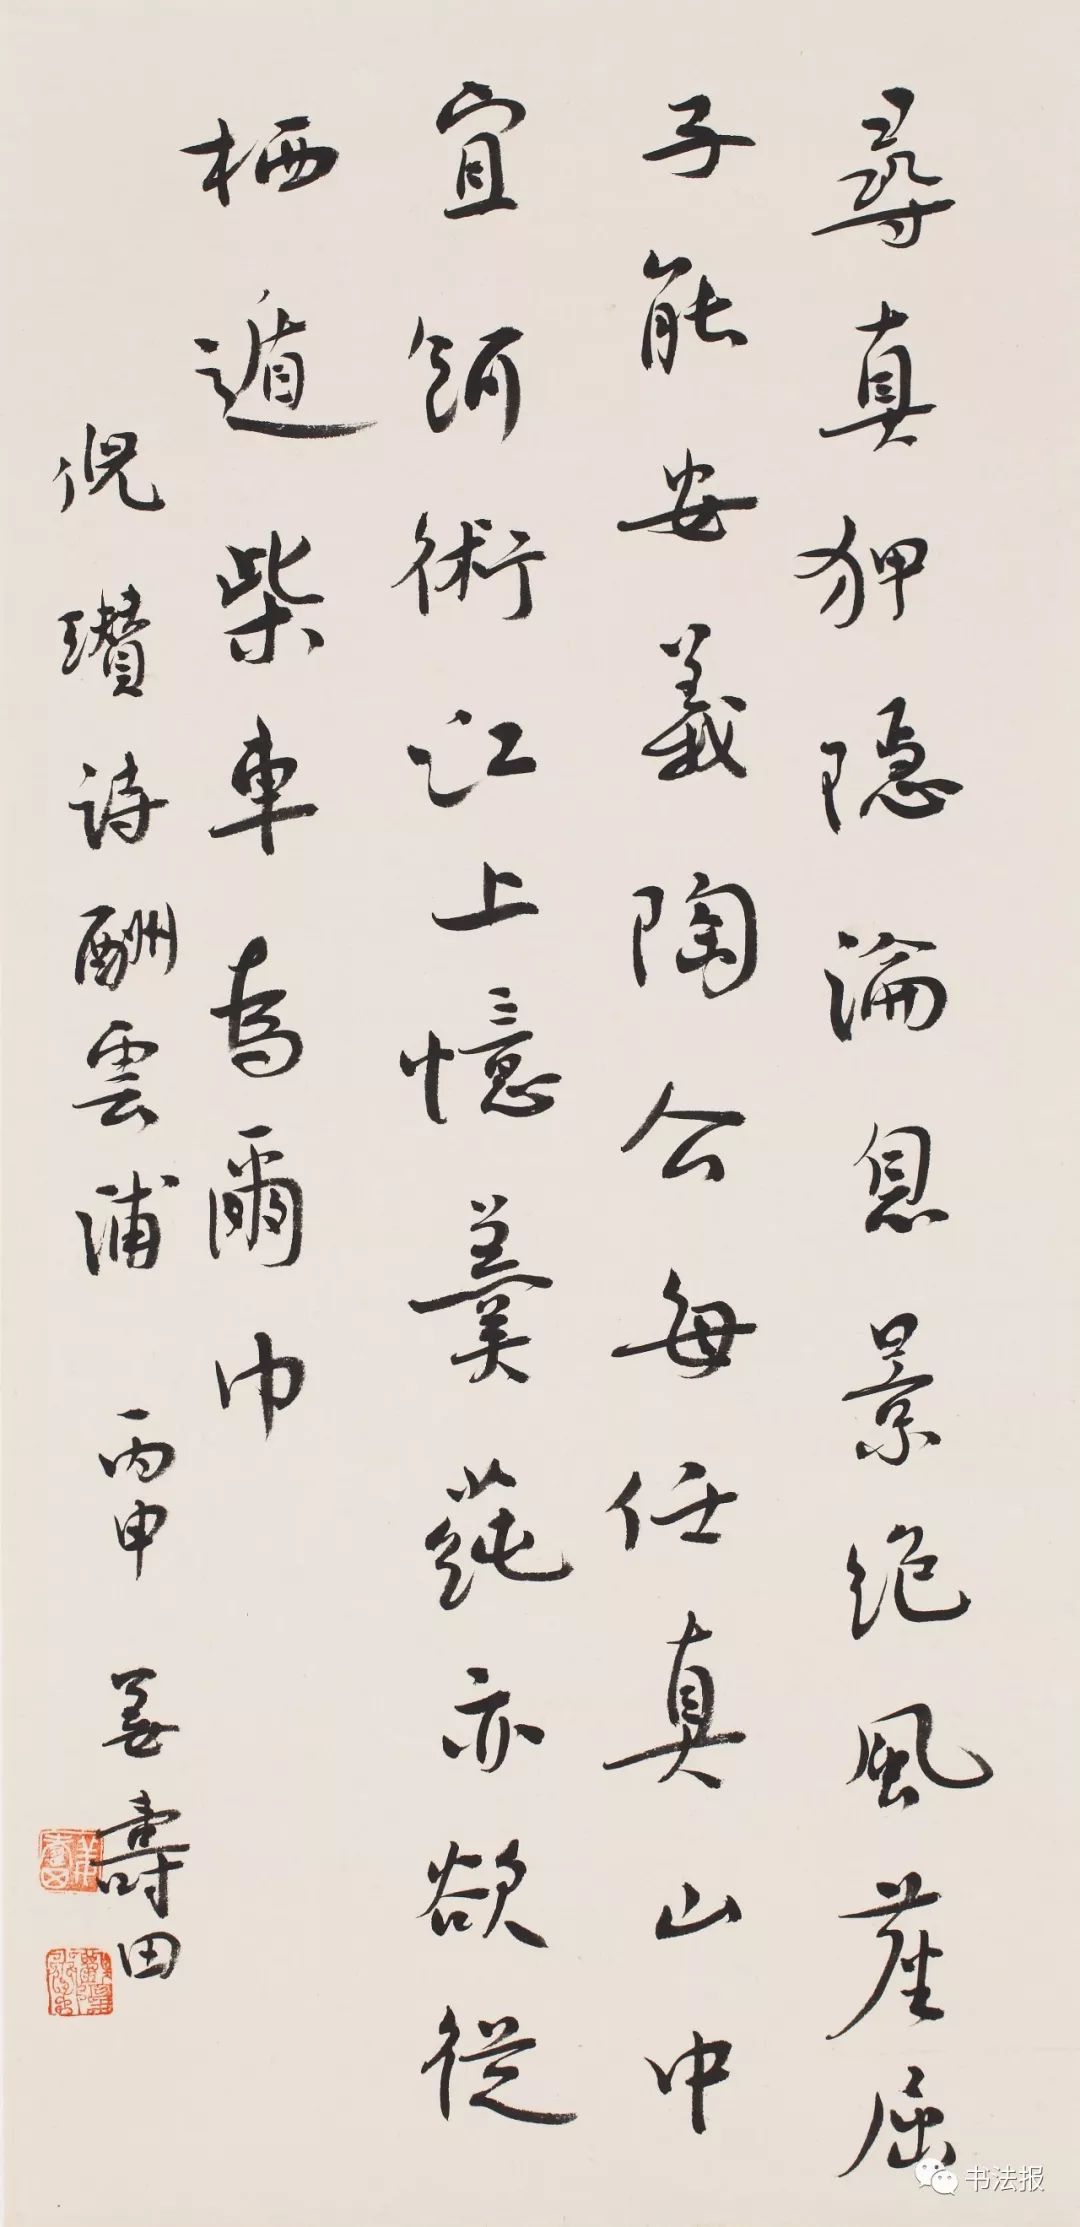 尋真狎隱淪息景絕風塵屈
子能安義陶公每任真山中
宜餌術江上憶羹蒓亦欲從
栖遁柴車為爾巾
倪瓚詩酬雲浦 丙申 姜壽田
书法报